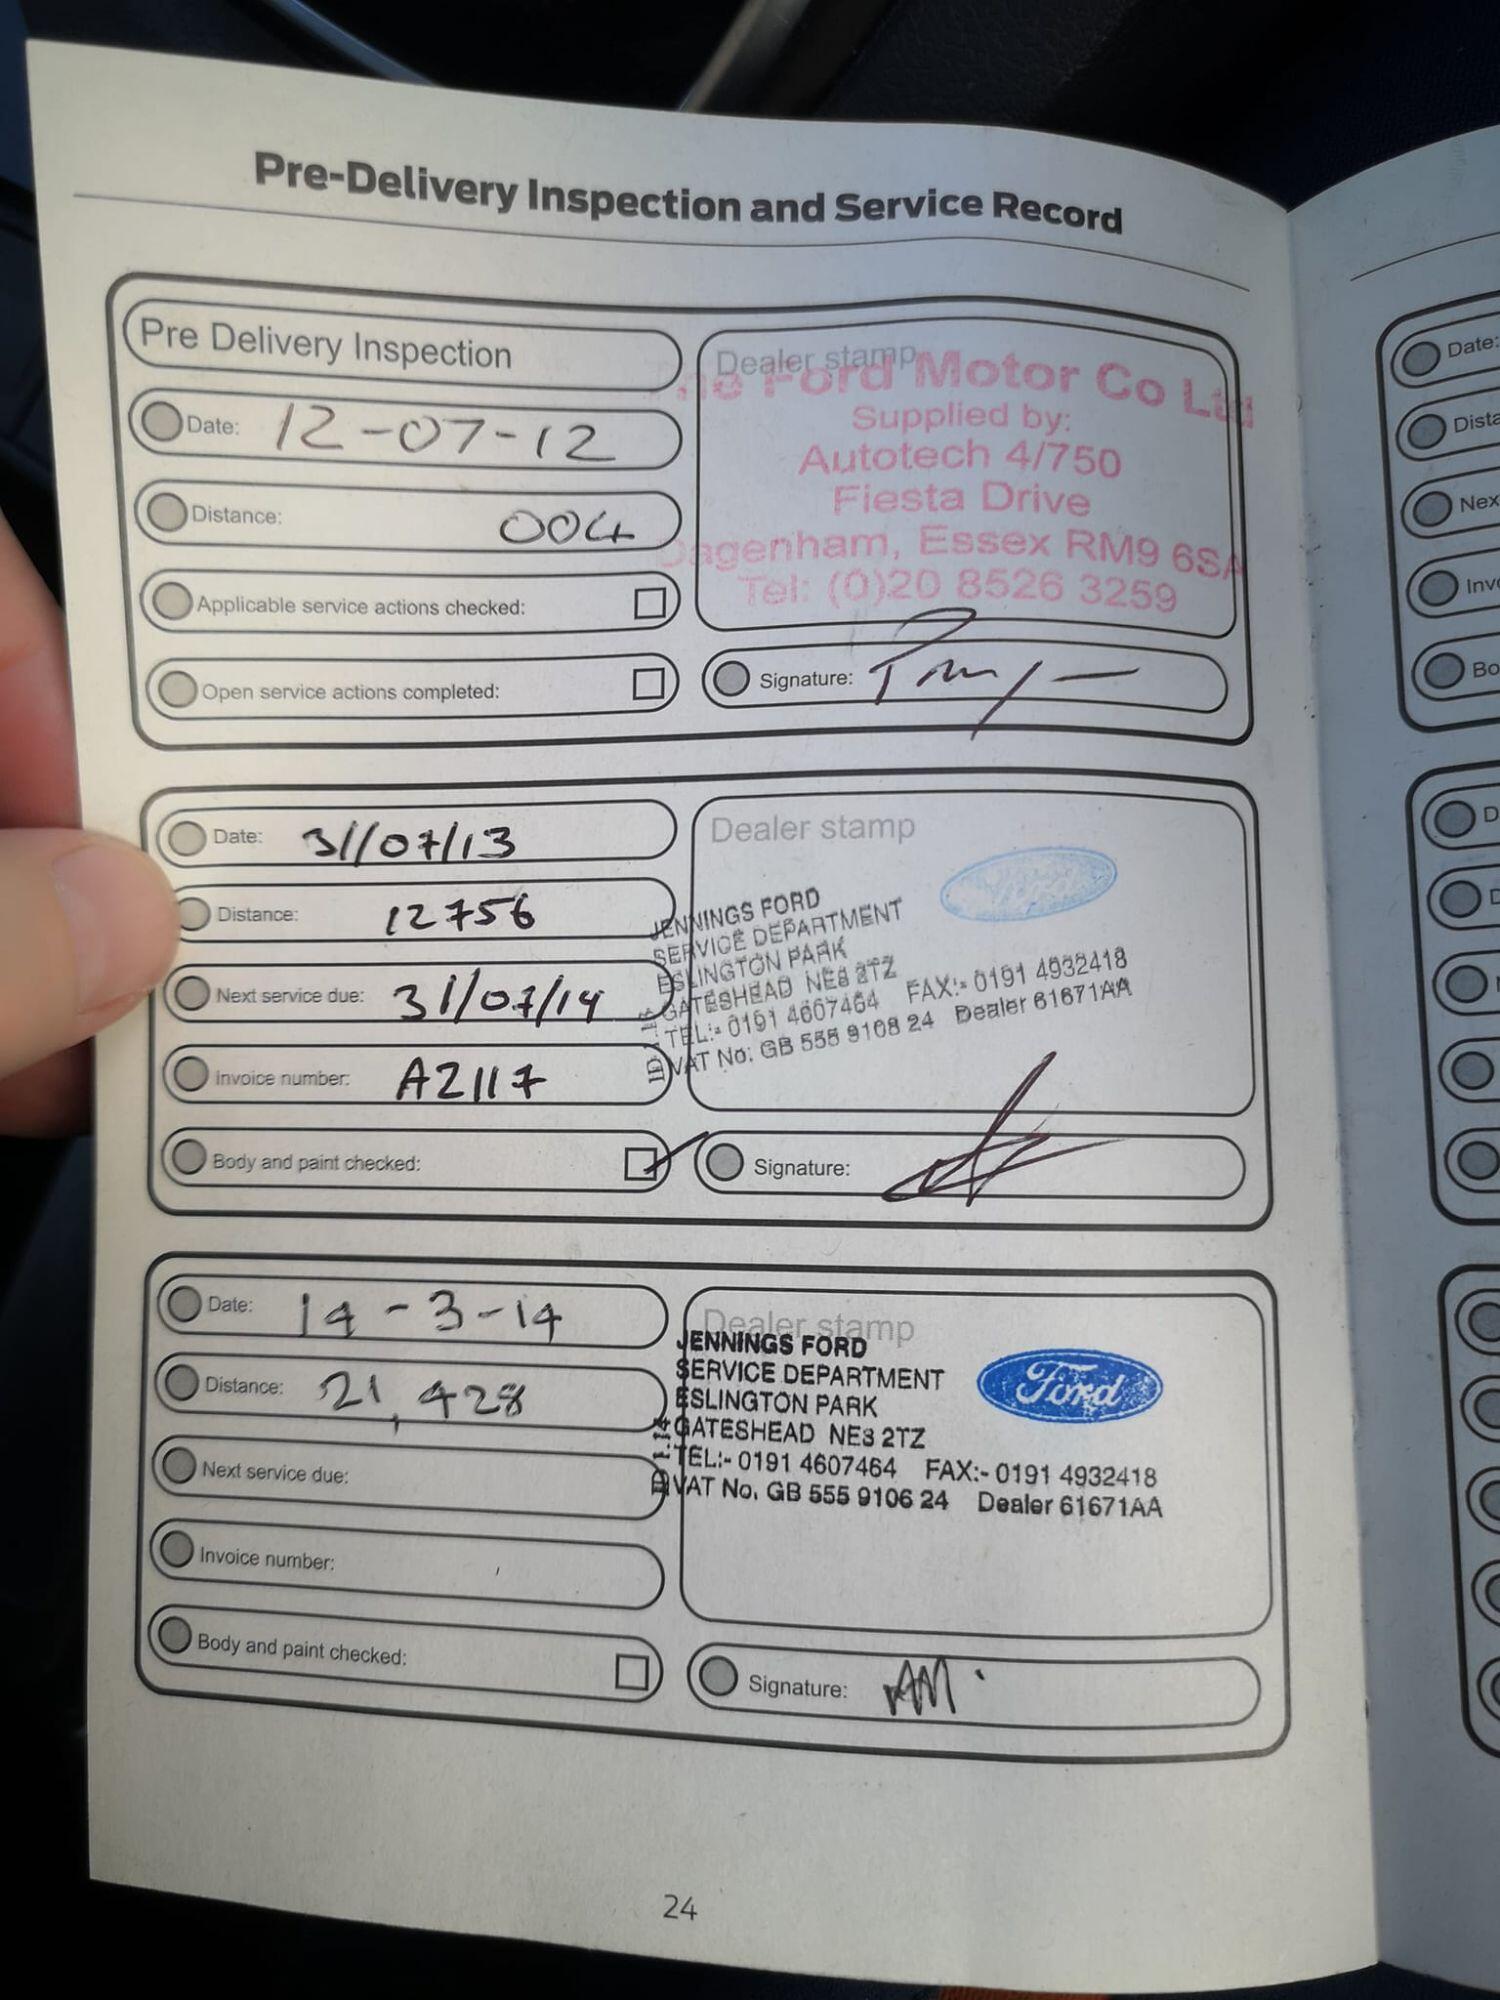 Pre-Delivery Inspection and Service Record
Pre Delivery Inspection
Date: 12-07-12
Distance: 004
Applicable service actions checked:
Open service actions completed:
Dealer stamp
The Ford Motor Co Ltd
Supplied by:
Autotech 4/750
Fiesta Drive
Dagenham, Essex RM9 6SA
Tel: (0)20 8526 3259
Signature:
Date: 31/07/13
Distance: 12756
Next service due: 31/07/14
Invoice number: A2117
Body and paint checked:
Dealer stamp
Ford
JENNINGS FORD
SERVICE DEPARTMENT
ESLINGTON PARK
GATESHEAD NE8 2TZ
TEL:- 0191 4607464 FAX:- 0191 4932418
VAT No: GB 555 9106 24 Dealer 61671AA
Signature:
Date: 14-3-14
Distance: 21,428
Next service due:
Invoice number:
Body and paint checked:
Dealer stamp
JENNINGS FORD
SERVICE DEPARTMENT
ESLINGTON PARK
GATESHEAD NE8 2TZ
TEL:- 0191 4607464 FAX:- 0191 4932418
VAT No. GB 555 9106 24 Dealer 61671AA
Ford
Signature: AM
24
Date: